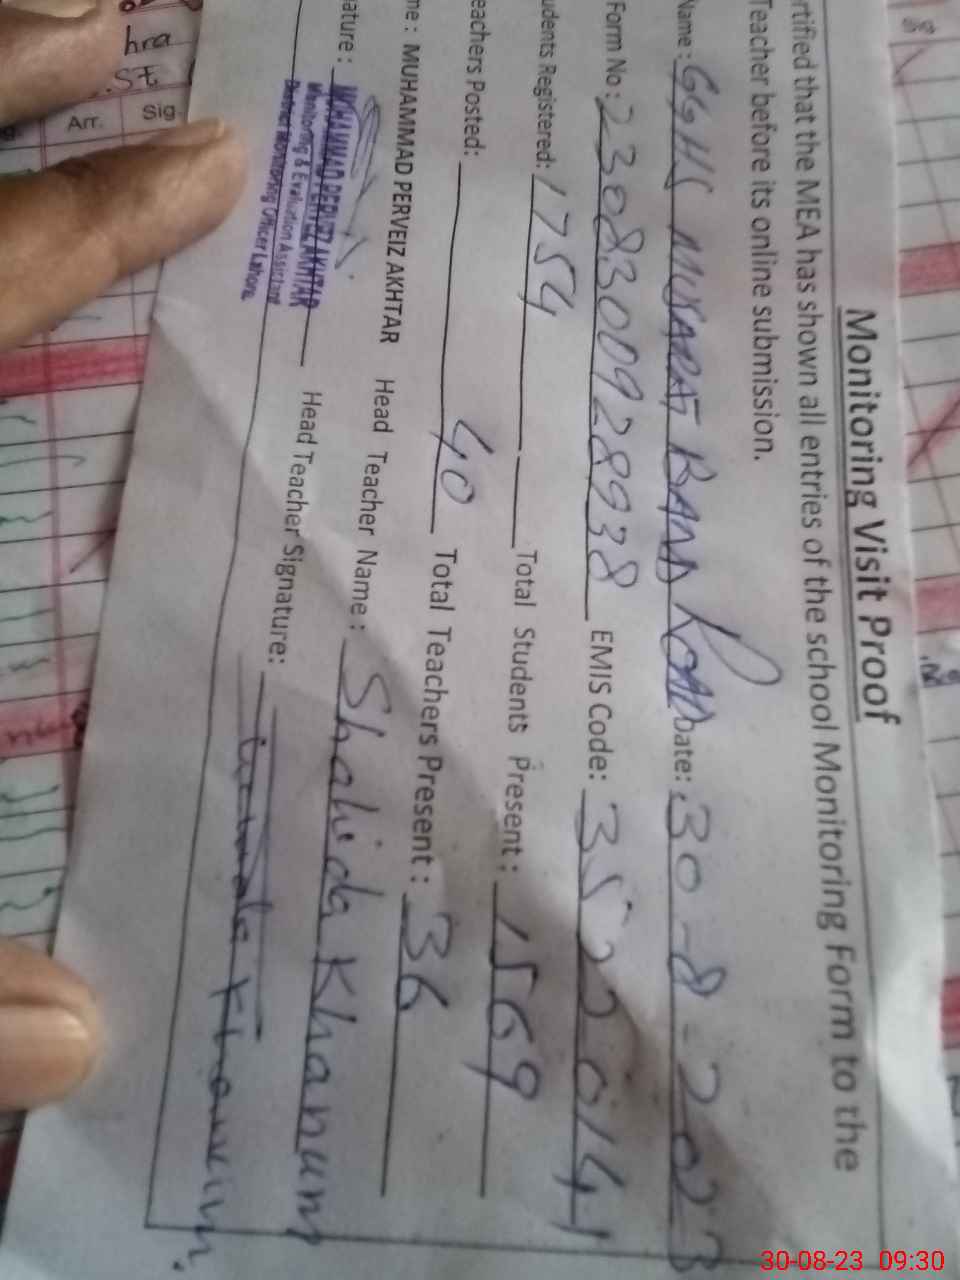 Monitoring Visit Proof
rtified that the MEA has shown all entries of the school Monitoring Form to the
Teacher before its online submission.
Name : GGHS MUSARAT BAND ROAD Date: 30-8-2023
Form No: 2308300928938 EMIS Code: 35220141
udents Registered: 1754 Total Students Present : 1569
eachers Posted: 40 Total Teachers Present : 36
me : MUHAMMAD PERVEIZ AKHTAR Head Teacher Name : Shahida Khanum
ature : Head Teacher Signature:
MUHAMMAD PERVEZ AKHTAR
Monitoring & Evaluation Assistant
District Monitoring Officer Lahore
hra
St
Arr. Sig.
30-08-23 09:30